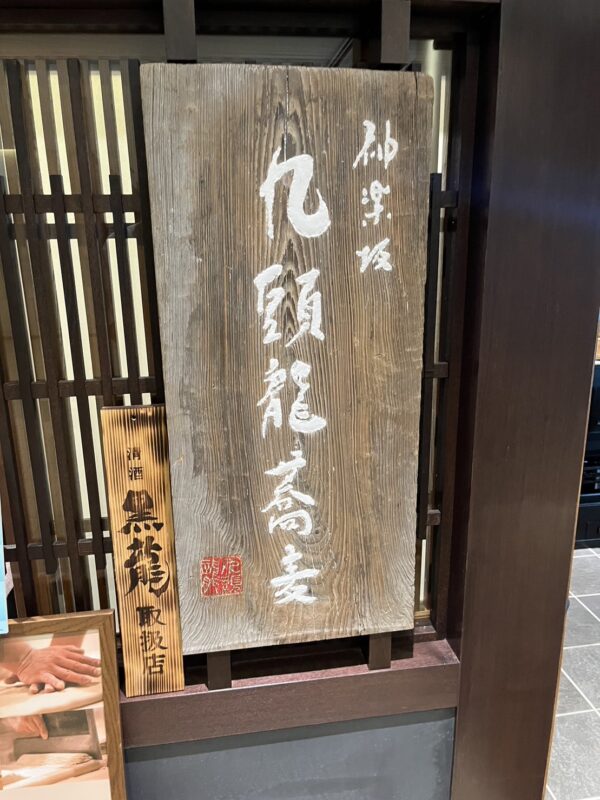 神楽坂
九頭龍蕎麦
清酒
黒龍
取扱店